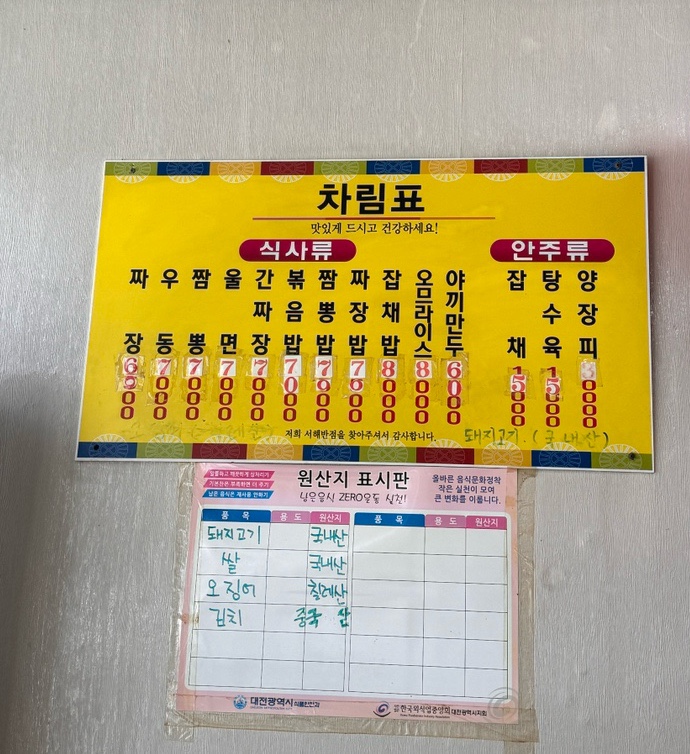 차림표
맛있게 드시고 건강하세요!
식사류
짜장 6000
우동 7000
짬뽕 7000
울면 7000
간짜장 7000
볶음밥 7000
짬뽕밥 7000
짜장밥 7000
잡채밥 8000
오므라이스 8000
야끼만두 6000
안주류
잡채 15000
탕수육 15000
양장피
저희 서해반점을 찾아주셔서 감사합니다.
돼지고기.(국내산)
원산지 표시판
남은음식 ZERO운동 실천!
올바른 음식문화정착
작은 실천이 모여
큰 변화를 이룹니다.
품목 용도 원산지 품목 용도 원산지
돼지고기 국내산
쌀 국내산
오징어 칠레산
김치 중국산
대전광역시 식품안전과
한국외식업중앙회 대전광역시지회